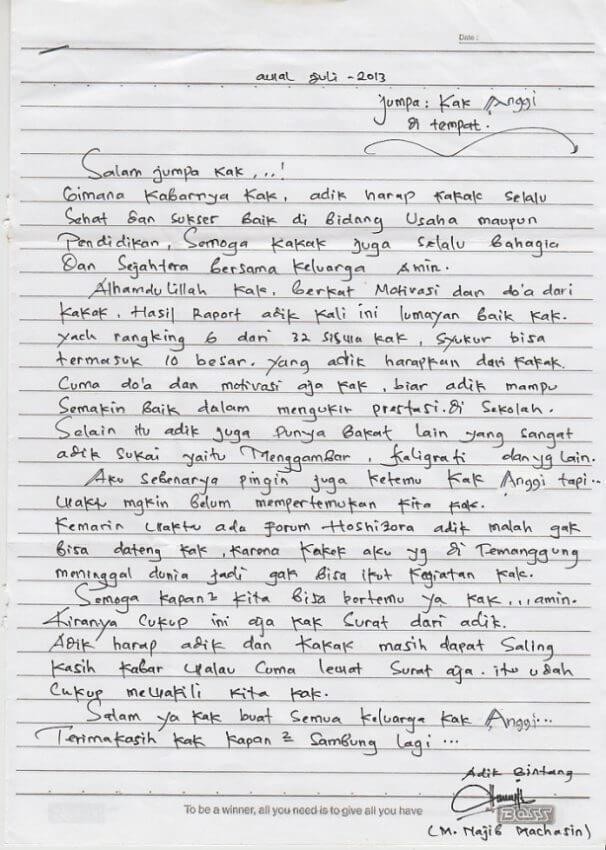 Date :
awal Juli - 2013
jumpa : Kak Anggi
di tempat.
Salam jumpa kak, ...!
Gimana kabarnya kak, adik harap kakak selalu
Sehat dan sukser baik di Bidang Usaha maupun
Pendidikan, Semoga kakak juga selalu Bahagia
Dan Sejahtera bersama keluarga Amin.
Alhamdulillah kak, berkat Motivasi dan do'a dari
kakak, Hasil Raport adik kali ini lumayan baik kak.
yach rangking 6 dari 32 siswa kak, syukur bisa
termasuk 10 besar. yang adik harapkan dari kakak.
Cuma do'a dan motivasi aja kak, biar adik mampu
Semakin baik dalam mengukir prestasi di sekolah.
Selain itu adik juga punya bakat lain yang sangat
adik sukai yaitu Menggambar, kaligrafi dan yg lain.
Aku sebenarya pingin juga ketemu kak Anggi tapi..
waktu mgkin belum mempertemukan kita kak.
Kemarin waktu ada forum Hoshizora adik malah gak
bisa dateng kak, karena kakek aku yg di Temanggung
meninggal dunia jadi gak bisa ikut kegiatan kak.
Semoga kapan² kita bisa bertemu ya kak, ..amin.
Kiranya Cukup ini aja kak Surat dari adik.
Adik harap adik dan kakak masih dapat Saling
kasih kabar walau Cuma lewat Surat aja. itu udah
Cukup mewakili kita kak.
Salam ya kak buat Semua keluarga kak Anggi...
Terimakasih kak kapan² Sambung lagi ...
Adik Bintang
To be a winner, all you need is to give all you have
BOSS
(M. Najib Machasin)